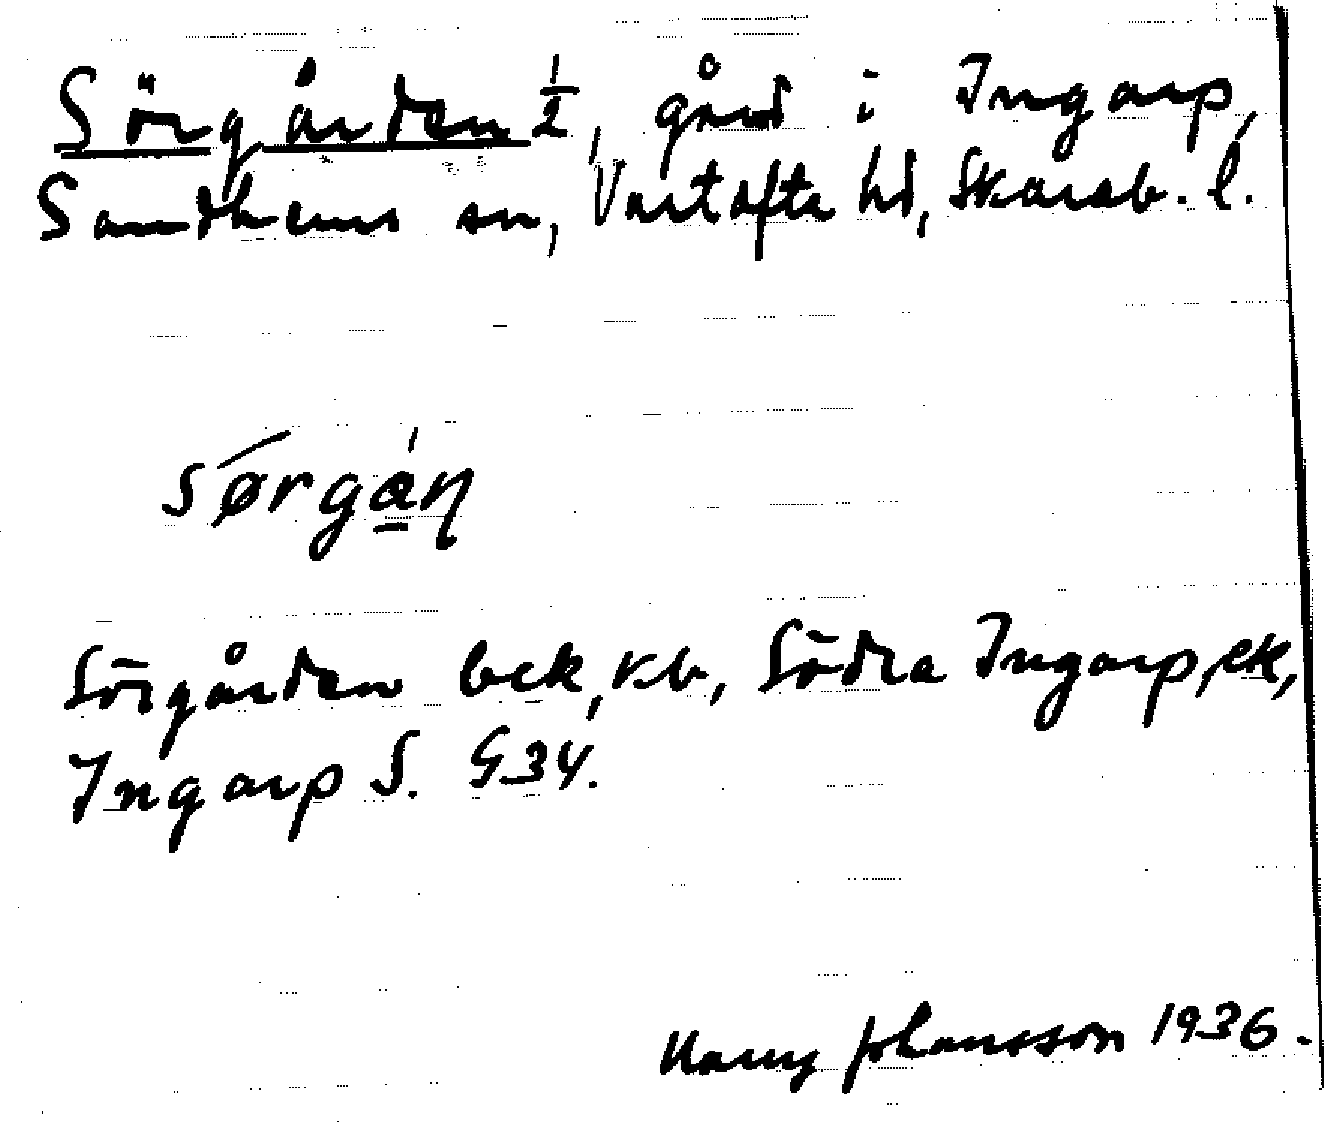 Sörgården ½, gård i Ingarp,
Sandhems sn, Vartofta hd, Skarab. l.
sørgán
Sörgården bek, kb, Södra Ingarp, ek,
Ingarp S. G34.
Harry Johansson 1936.